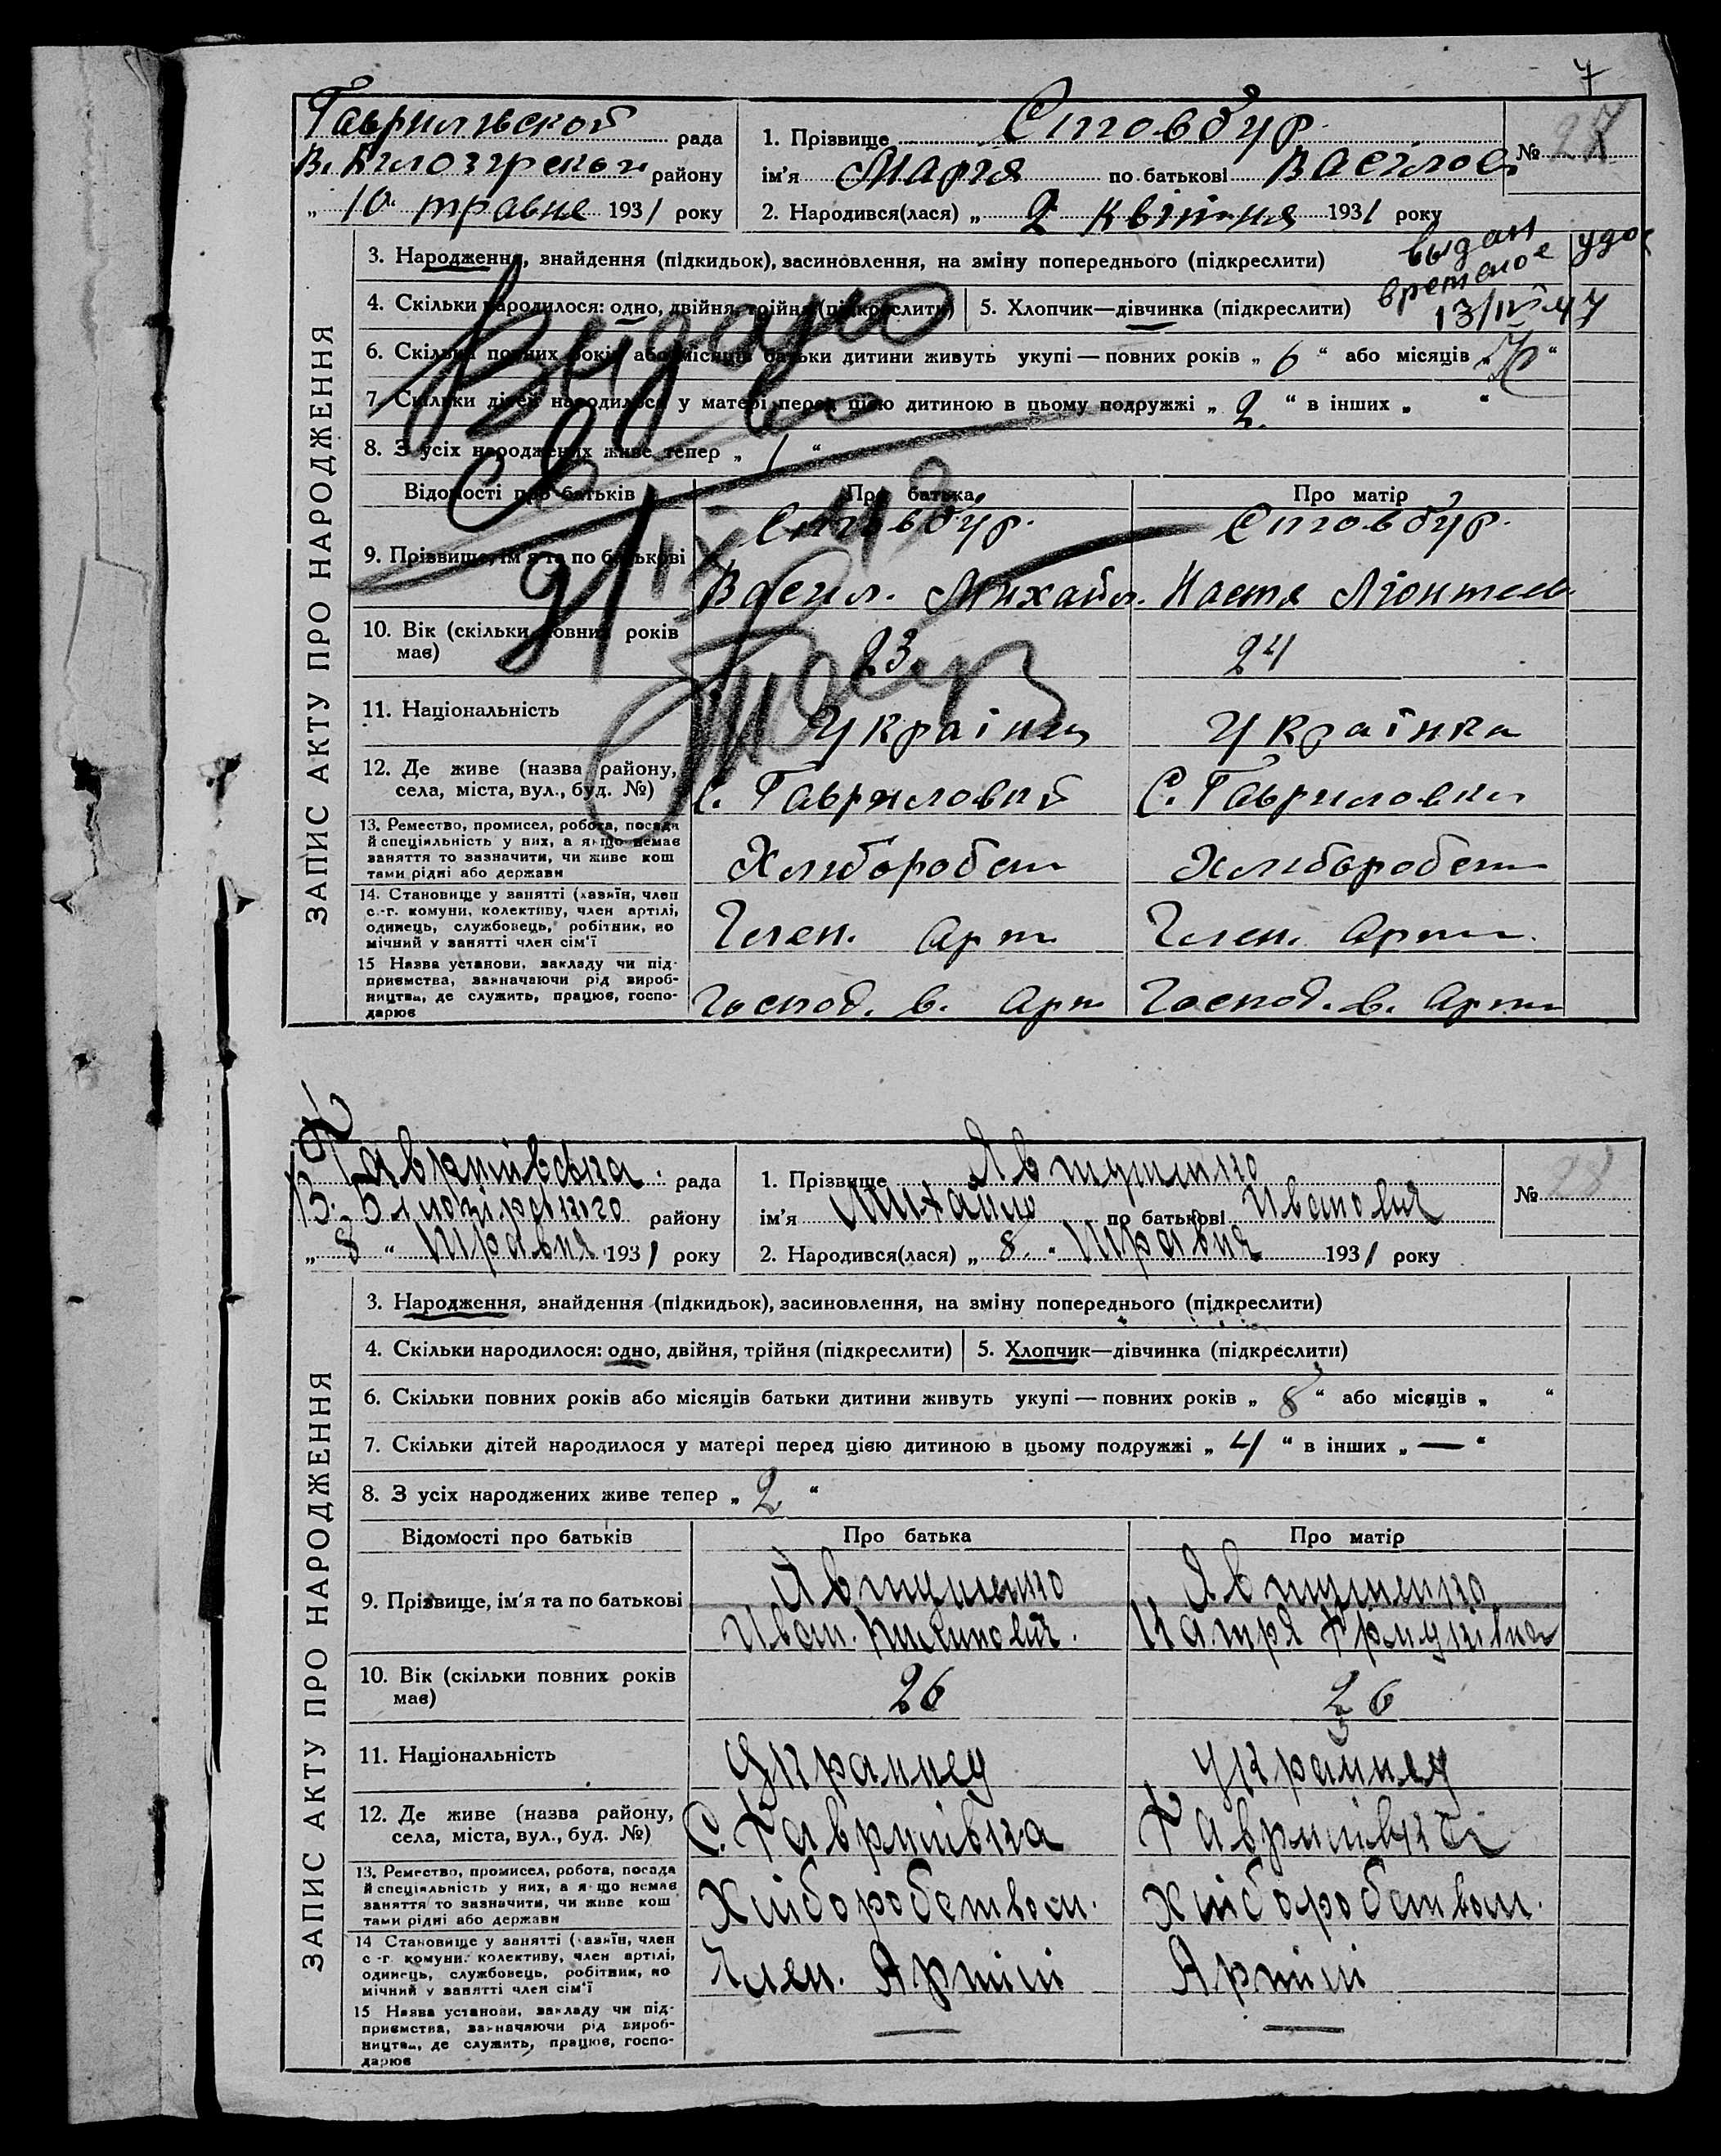 7
Гаврилівской рада
В. Білозірского району
„ 10 “ травня 1931 року
1. Прізвище Стовбур
ім'я Марія по батькові Васілов
№ 27
2. Народився(лася) „ 2 квітня 1931 року
выдан удос
временое
13/IV 47
ЗАПИС АКТУ ПРО НАРОДЖЕННЯ
3. Народження, знайдення (підкидьок), засиновлення, на зміну попереднього (підкреслити)
4. Скільки народилося: одно, двійня, трійня (підкреслити) 5. Хлопчик—дівчинка (підкреслити)
6. Скільки повних років або місяців батьки дитини живуть укупі — повних років „ 6 “ або місяців „ “
7. Скільки дітей народилося у матері перед цією дитиною в цьому подружжі „ 2 “ в інших „ “
8. З усіх народжених живе тепер „ 1 “
Видано
св
Відомості про батьків Про батька Про матір
9. Прізвище, ім'я та по батькові
Стовбур. Стовбур.
Васил. Михайл. Настя Ліонтьев
10. Вік (скільки повних років має) 23 24
11. Національність Українц Українка
12. Де живе (назва району, села, міста, вул., буд. №) С. Гавриловки С. Гавриловки
13. Ремество, промисел, робота, посада й спеціяльність у них, а якщо немає заняття то зазначити, чи живе коштами рідні або держави Хліборобст Хліборобст
14. Становище у занятті (хазяїн, член с.-г. комуни, колективу, член артілі, одинець, службовець, робітник, помічний у занятті член сім'ї Член. Арт Член. Арт
15 Назва установи, закладу чи підприємства, зазначаючи рід виробництва, де служить, працює, господарює Господ. в. Арт Господ. в. Арт
Гаврилівська рада
В. Білозірського району
„ 8 “ Травня 1931 року
1. Прізвище Явтушенко
ім'я Михайло по батькові Иванович
№ 28
2. Народився(лася) „ 8 “ Травня 1931 року
ЗАПИС АКТУ ПРО НАРОДЖЕННЯ
3. Народження, знайдення (підкидьок), засиновлення, на зміну попереднього (підкреслити)
4. Скільки народилося: одно, двійня, трійня (підкреслити) 5. Хлопчик—дівчинка (підкреслити)
6. Скільки повних років або місяців батьки дитини живуть укупі — повних років „ 8 “ або місяців „ “
7. Скільки дітей народилося у матері перед цією дитиною в цьому подружжі „ 4 “ в інших „ — “
8. З усіх народжених живе тепер „ 2 “
Відомості про батьків Про батька Про матір
9. Прізвище, ім'я та по батькові
Явтушенко Явтушенко
Иван. Катря
10. Вік (скільки повних років має) 26 26
11. Національність Украинец Украинец
12. Де живе (назва району, села, міста, вул., буд. №) С. Гаврилівка Гаврилівка
13. Ремество, промисел, робота, посада й спеціяльність у них, а якщо немає заняття то зазначити, чи живе коштами рідні або держави Хліборобством. Хліборобством.
14 Становище у занятті (хазяїн, член с-г. комуни. колективу, член артілі, одинець, службовець, робітник, помічний у занятті член сім'ї Член. Артілі Артілі
15 Назва установи, закладу чи підприємства, зазначаючи рід виробництва, де служить, працює, господарює — —